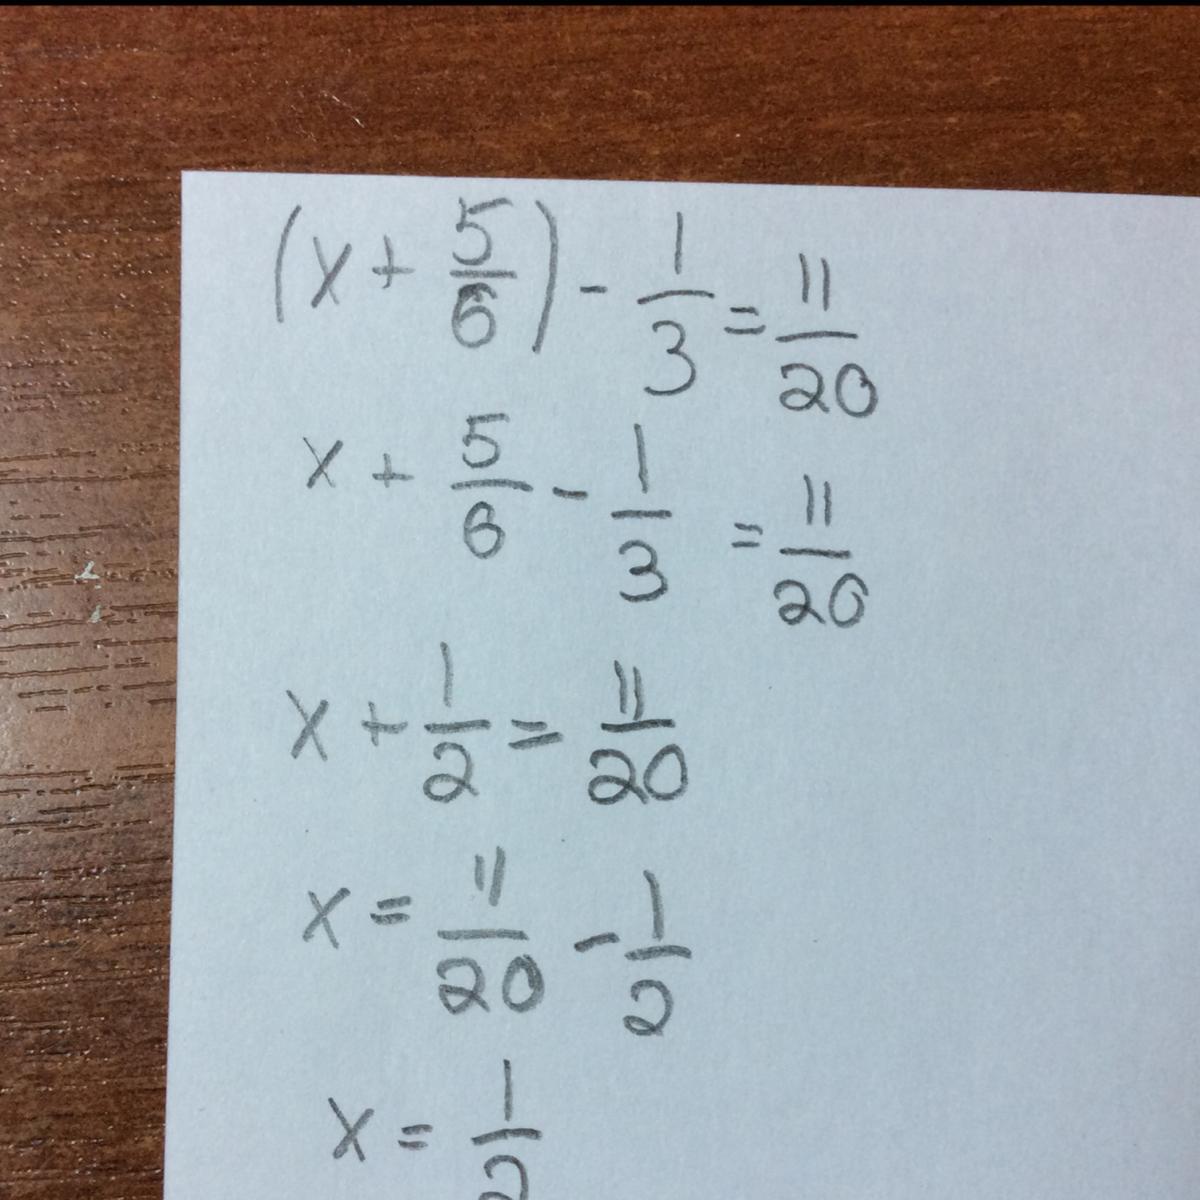 (x + 5/6) - 1/3 = 11/20
x + 5/6 - 1/3 = 11/20
x + 1/2 = 11/20
x = 11/20 - 1/2
x = 1/